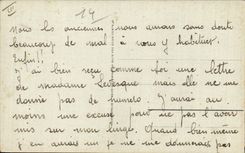 III
14
Nous les anciennes, nous avons sans doute
beaucoup de mal à vous y habituer.
Enfin!!
J'ai bien reçu comme toi une lettre
de madame Levesque mais elle ne me
donne pas de numéro. J'aurai au
moins une excuse pour ne pas l'avoir
mis sur mon linge. Quand bien même
j'en aurais un je ne me donnerais pas